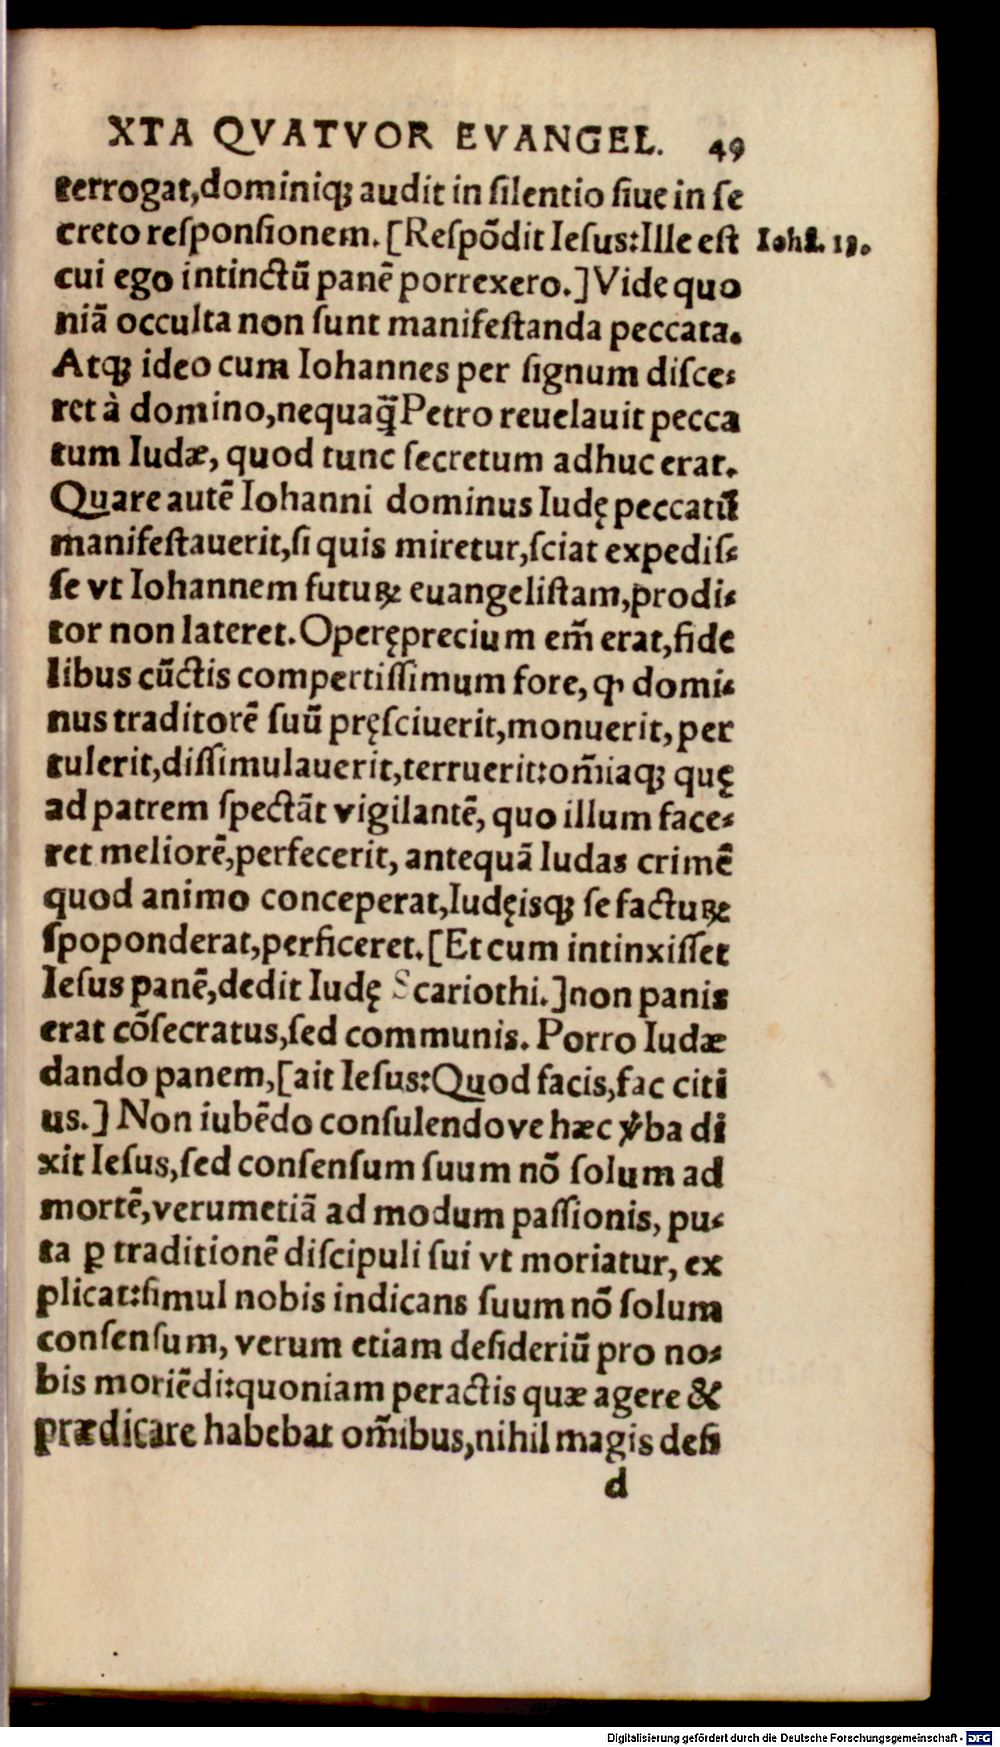 XTA QVATVOR EVANGEL. 49
terrogat,dominiqꝫ audit in ſilentio ſiue in ſe
creto reſponſionem. [Reſpõdit Ieſus: Ille eſt Iohã. 13.
cui ego intinctũ panẽ porrexero.] Vide quo
niã occulta non ſunt manifeſtanda peccata.
Atqꝫ ideo cum Iohannes per ſignum diſce⸗
ret à domino,nequaq̃ Petro reuelauit pecca
tum Iudæ, quod tunc ſecretum adhuc erat.
Quare autẽ Iohanni dominus Iudę peccatũ
manifeſtauerit,ſi quis miretur,ſciat expediſ⸗
ſe vt Iohannem futuꝝ euangeliſtam,prodi⸗
tor non lateret. Operęprecium em̃ erat,fide
libus cũctis compertiſſimum fore, ꝙ domi⸗
nus traditorẽ ſuũ pręſciuerit,monuerit, per
tulerit,diſſimulauerit,terruerit:om̃iaqꝫ quę
ad patrem ſpectãt vigilantẽ, quo illum face⸗
ret meliorẽ,perfecerit, antequã Iudas crimẽ
quod animo conceperat,Iudęisqꝫ ſe factuꝝ
ſpoponderat,perficeret. [Et cum intinxiſſet
Ieſus panẽ,dedit Iudę Scariothi.] non panis
erat cõſecratus,ſed communis. Porro Iudæ
dando panem,[ait Ieſus: Quod facis,fac citi
us.] Non iubẽdo conſulendove hæc v̉ba di
xit Ieſus,ſed conſenſum ſuum nõ ſolum ad
mortẽ,verumetiã ad modum paſſionis, pu⸗
ta ꝑ traditionẽ diſcipuli ſui vt moriatur, ex
plicat:ſimul nobis indicans ſuum nõ ſolum
conſenſum, verum etiam deſideriũ pro no⸗
bis moriẽdi:quoniam peractis quæ agere &
prædicare habebat om̃ibus,nihil magis deſi
d
Digitalisierung gefördert durch die Deutsche Forschungsgemeinschaft - DFG